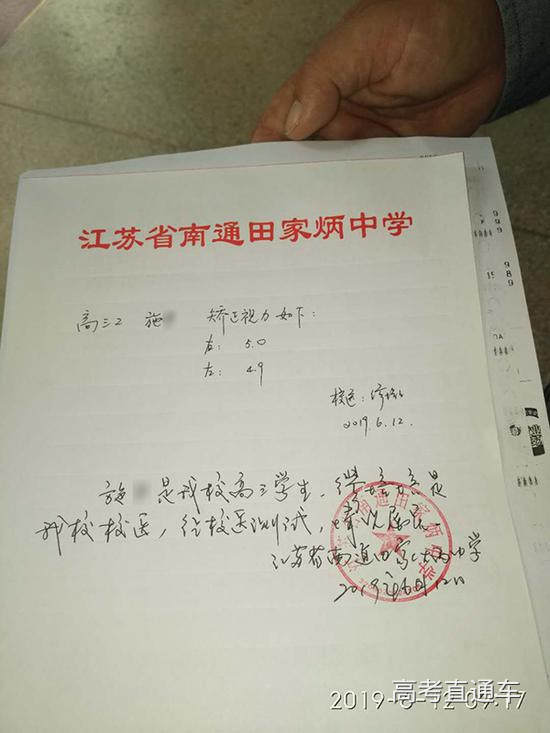 江苏省南通田家炳中学
高三2 施 矫正视力如下:
右: 5.0
左: 4.9
校医:
2019.6.12.
施 是我校高三学生,
我校校医,经校医测试,情况属实.
江苏省南通田家炳中学
2019年6月12日
高考直通车